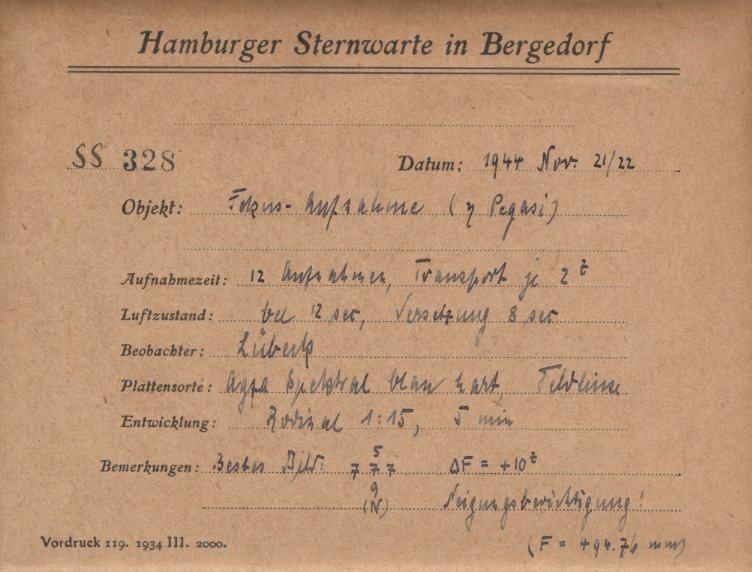 Hamburger Sternwarte in Bergedorf
SS 328 Datum: 1944 Nov. 21/22
Objekt: Fokus-Aufnahme (η Pegasi)
Aufnahmezeit: 12 Aufnahmen, Transport je 2ᵗ
Luftzustand: bel 12 sec, Versetzung 8 sec
Beobachter: Lübeck
Plattensorte: Agfa Spektral blau hart, Feldlinse
Entwicklung: Rodinal 1:15, 5 min
5
Bemerkungen: Bestes Bild: 7 7 7 ΔF = +10ᵗ
9
(N) Neigungsberichtigung!
Vordruck 119. 1934 III. 2000. (F = 494.76 mm)